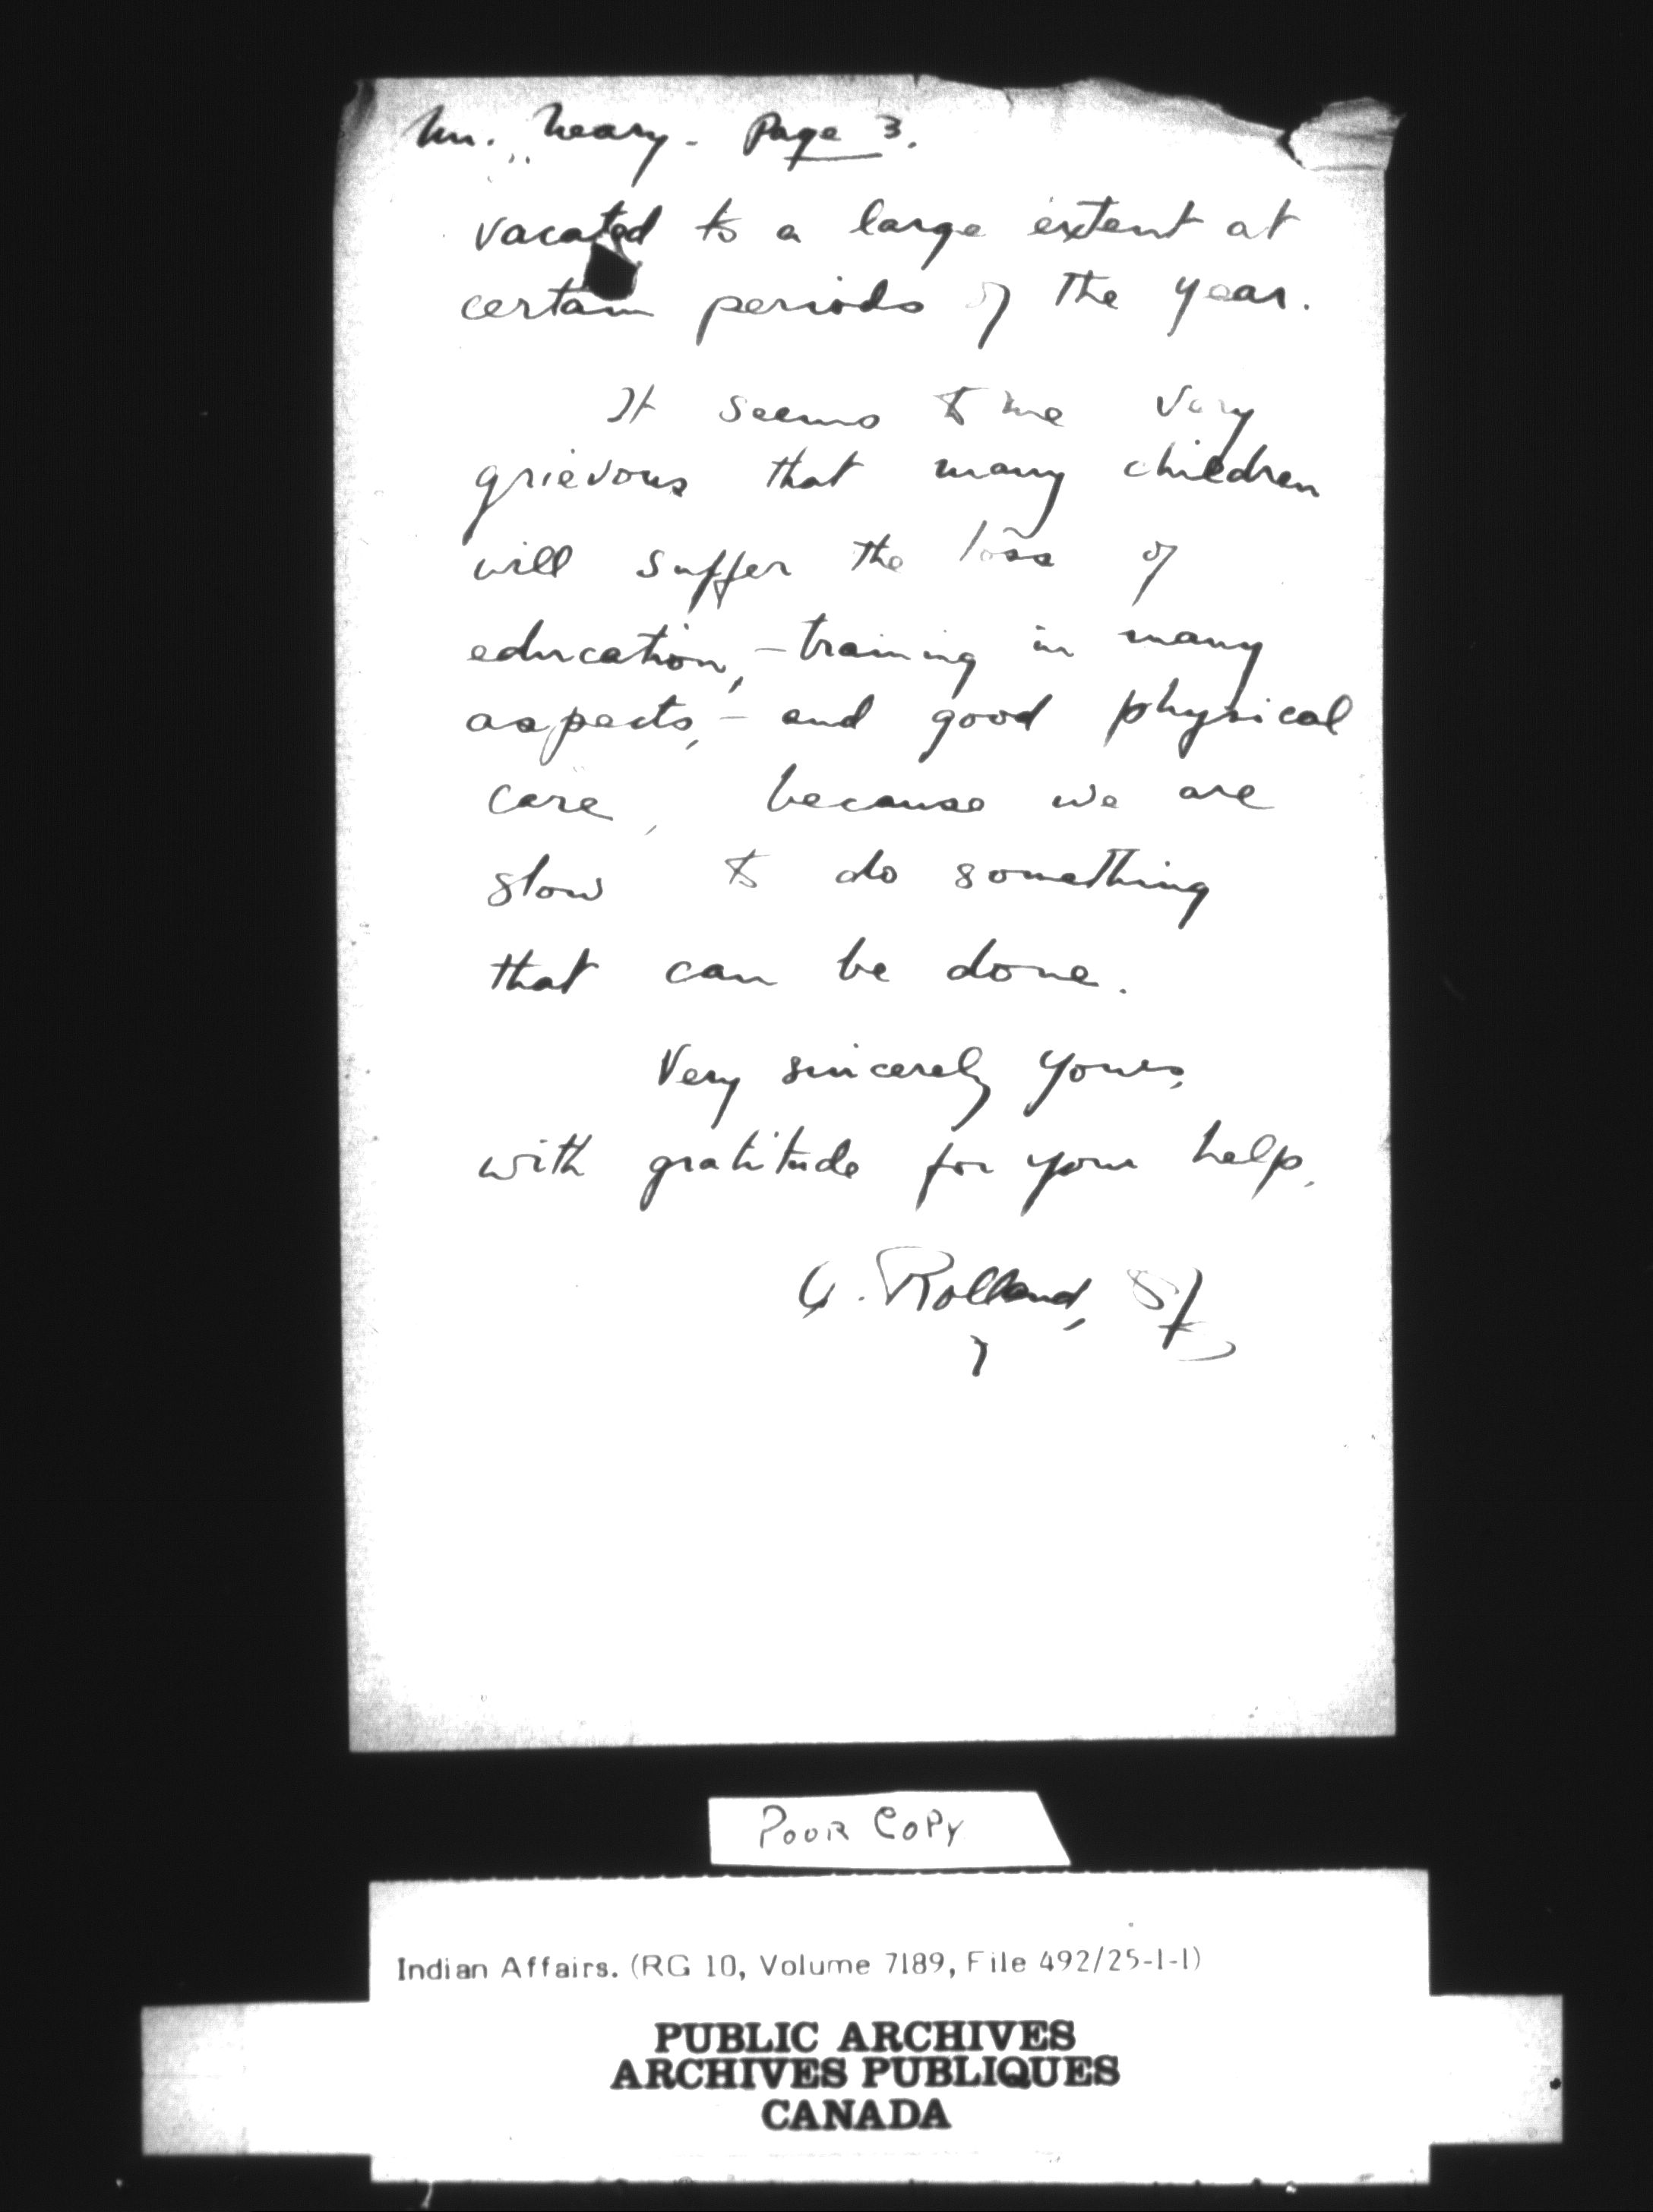 Mr. Neary - Page 3.
vacated to a large extent at
certain periods of the year.
It seems to me very
grievous that many children
will suffer the loss of
education, - training in many
aspects, - and good physical
care, because we are
slow to do something
that can be done.
Very sincerely yours,
with gratitude for your help.
G. Rolland, SJ
POOR COPY
Indian Affairs. (RG 10, Volume 7189, File 492/25-1-1)
PUBLIC ARCHIVES
ARCHIVES PUBLIQUES
CANADA